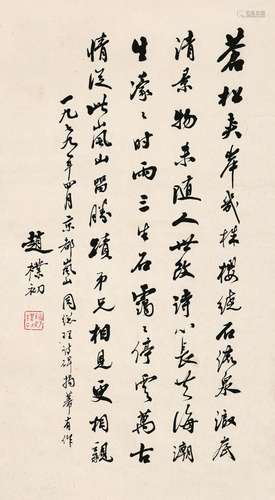 苍松夹岸几株樱绕石流泉澈底
清景物未随人世改诗心长共海潮
生濛濛时雨三生石霭霭停云万古
情从此岚山留胜迹弟兄相见更相亲
一九七九年四月京都岚山周总理诗碑揭幕有作
赵朴初